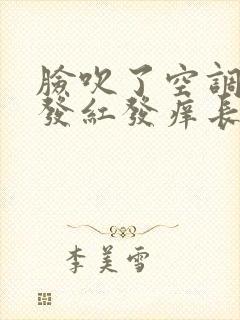 臉吹了空調
發紅發痒長
李美雪